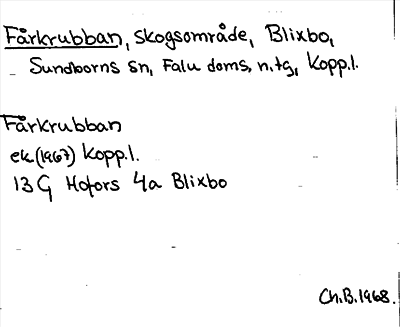 Fårkrubban, skogsområde, Blixbo,
Sundborns sn, Falu doms. n. tg, Kopp.l.
Fårkrubban
ek. (1967) Kopp.l.
13 G Hofors 4a Blixbo
Ch.B.1968.